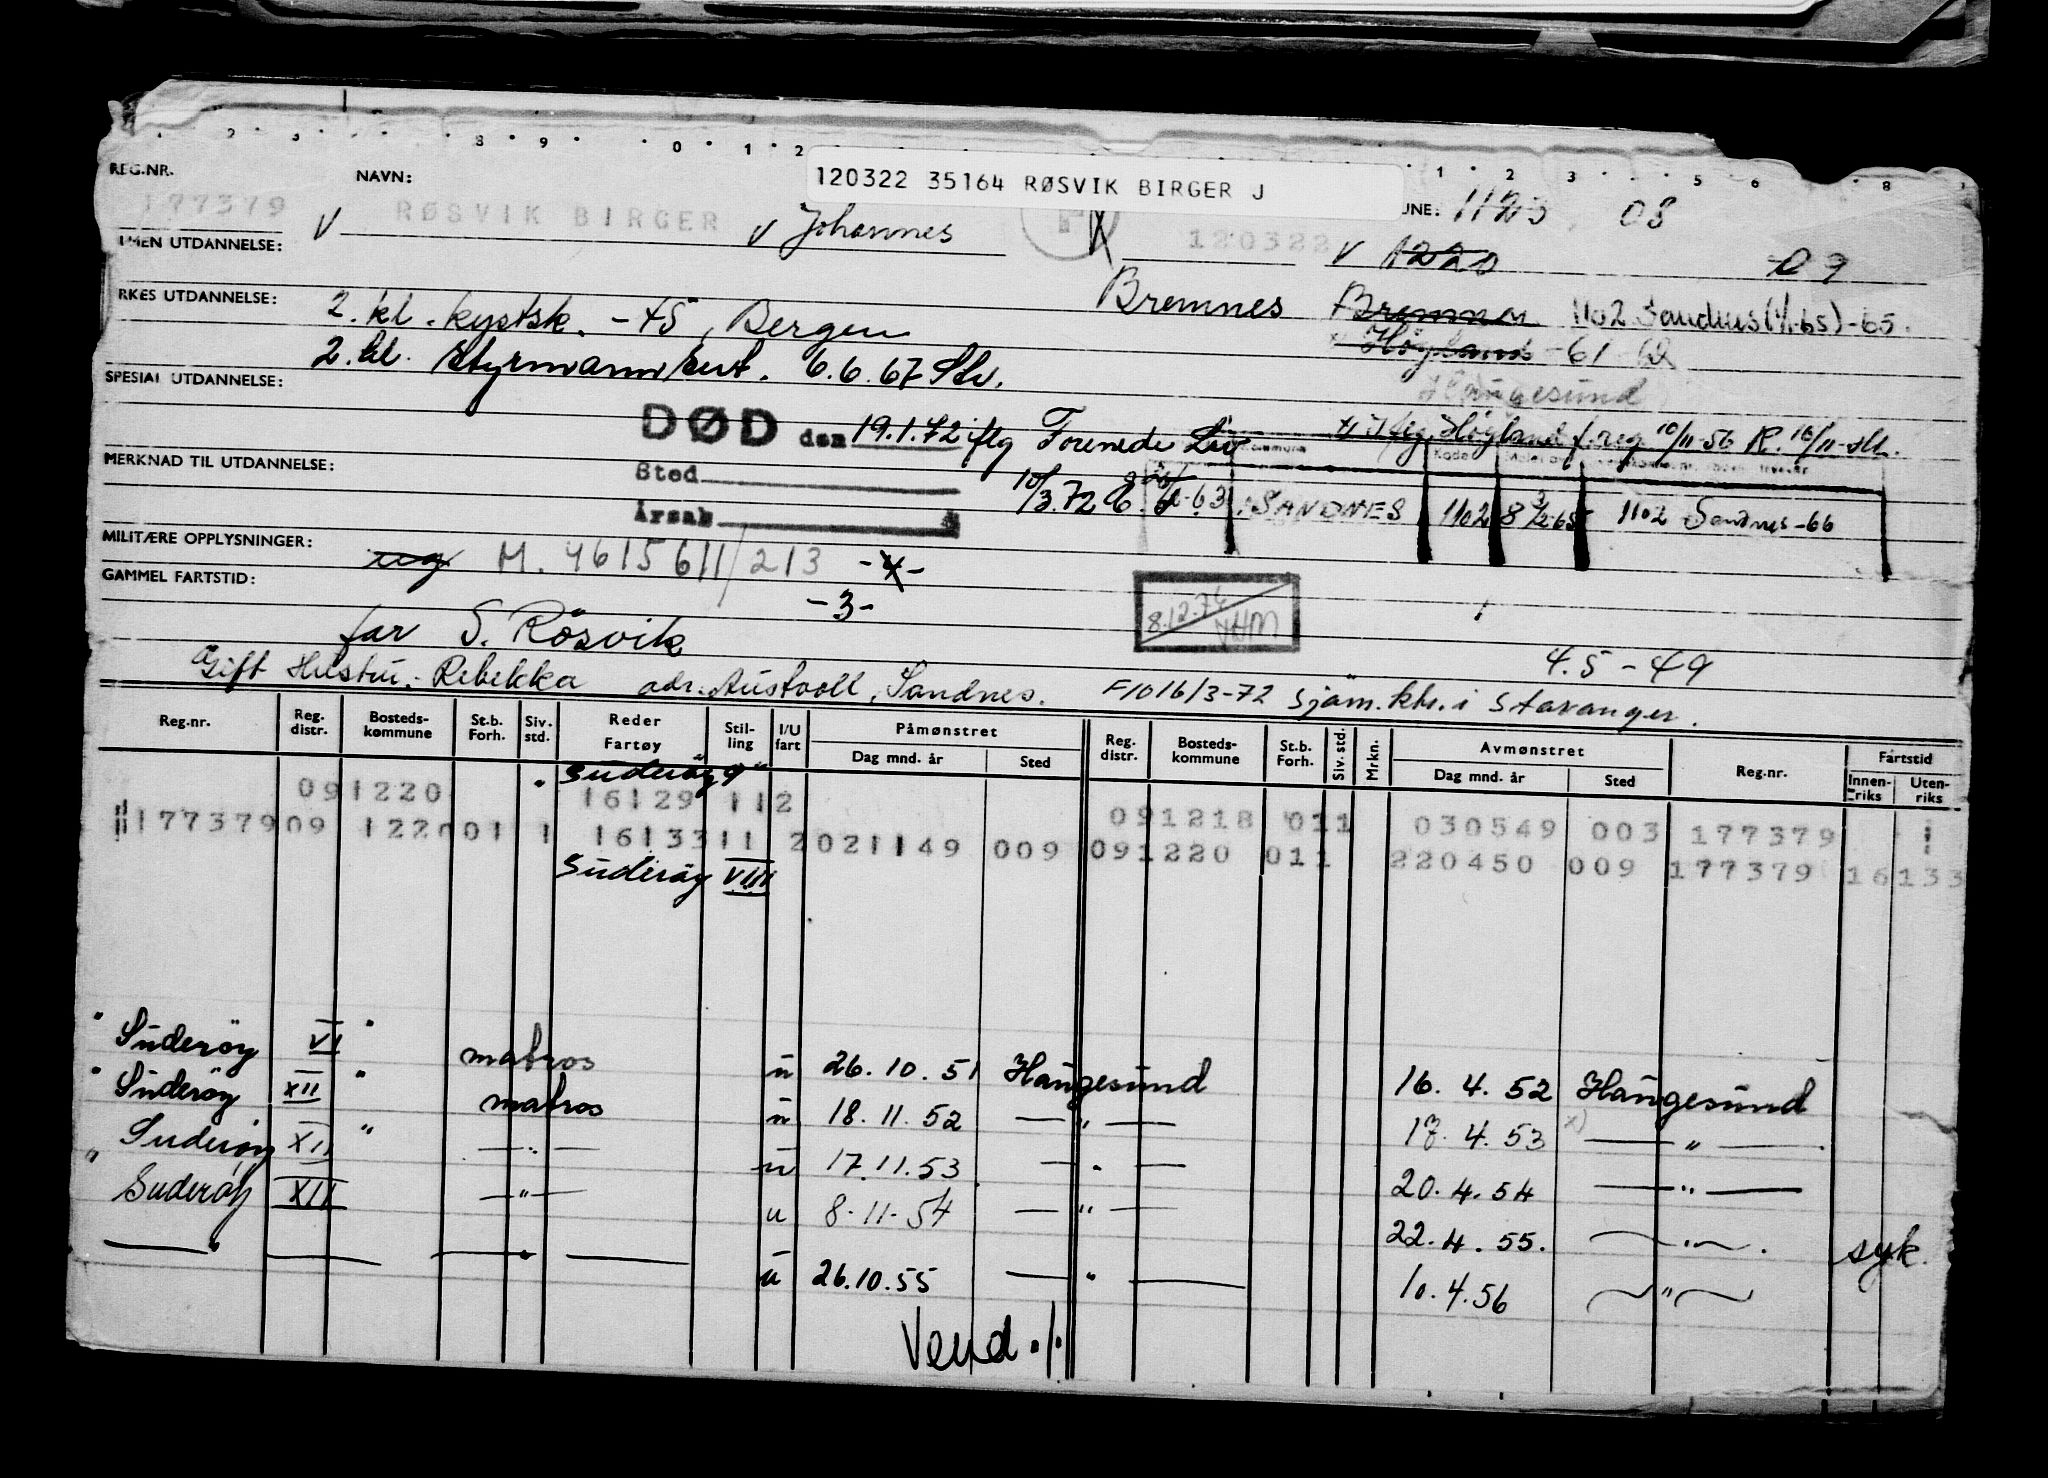 120322 35164 RØSVIK BIRGER J
REG.NR. NAVN:
177379 v RØSVIK BIRGER v Johannes 120322 v 1220 09
UTDANNELSE:
RKES UTDANNELSE: 2. kl. kystsk. -45, Bergen Bremnes 1102 Sandnes -65.
2. kl. styrmannsert. 6.6.67 Stv. Høyland -61
SPESIAL UTDANNELSE: Haugesund
DØD den 19.1.72 iflg Forenede Liv Høyland f. reg 10/11-56 R. 16/11-
MERKNAD TIL UTDANNELSE:
Sted 10/3.72 SANDNES 1102 8 1102 Sandnes -66
Årsak
MILITÆRE OPPLYSNINGER: M. 4615611/213 -4-
GAMMEL FARTSTID: -3-
8.12.74
far S. Røsvik
4.5-49
Gift Hustru: Rebekka adr. Austvoll, Sandnes. F1016/3-72 sjøm.ktr. i Stavanger.
Reg.nr. Reg. distr. Bosteds-kommune St.b. Forh. Siv. std. Reder Fartøy Stil-ling I/U fart Påmønstret Dag mnd. år Sted Reg. distr. Bosteds-kommune St.b. Forh. Siv. std. Mrkn. Avmønstret Dag mnd. år Sted Reg.nr. Fartstid Innen-riks Uten-riks
Suderøy 9"
091220 16129 112 091218 011 030549 003 177379
177379 09 1220 01 1 16133 11 2 021149 009 091220 011 220450 009 177379 16133
Suderøy VIII
" Suderøy VI " matros u 26.10.51 Haugesund 16.4.52 Haugesund
" Suderøy XII " matros u 18.11.52 — " — 17.4.53 x) — " —
Suderøy XII " — " — u 17.11.53 — " — 20.4.54 — " —
" Suderøy XII — " — u 8-11-54 — " — 22.4.55. — " — syk.
— " — — " — u 26.10.55 — " — 10.4.56 — " —
Vend ./.